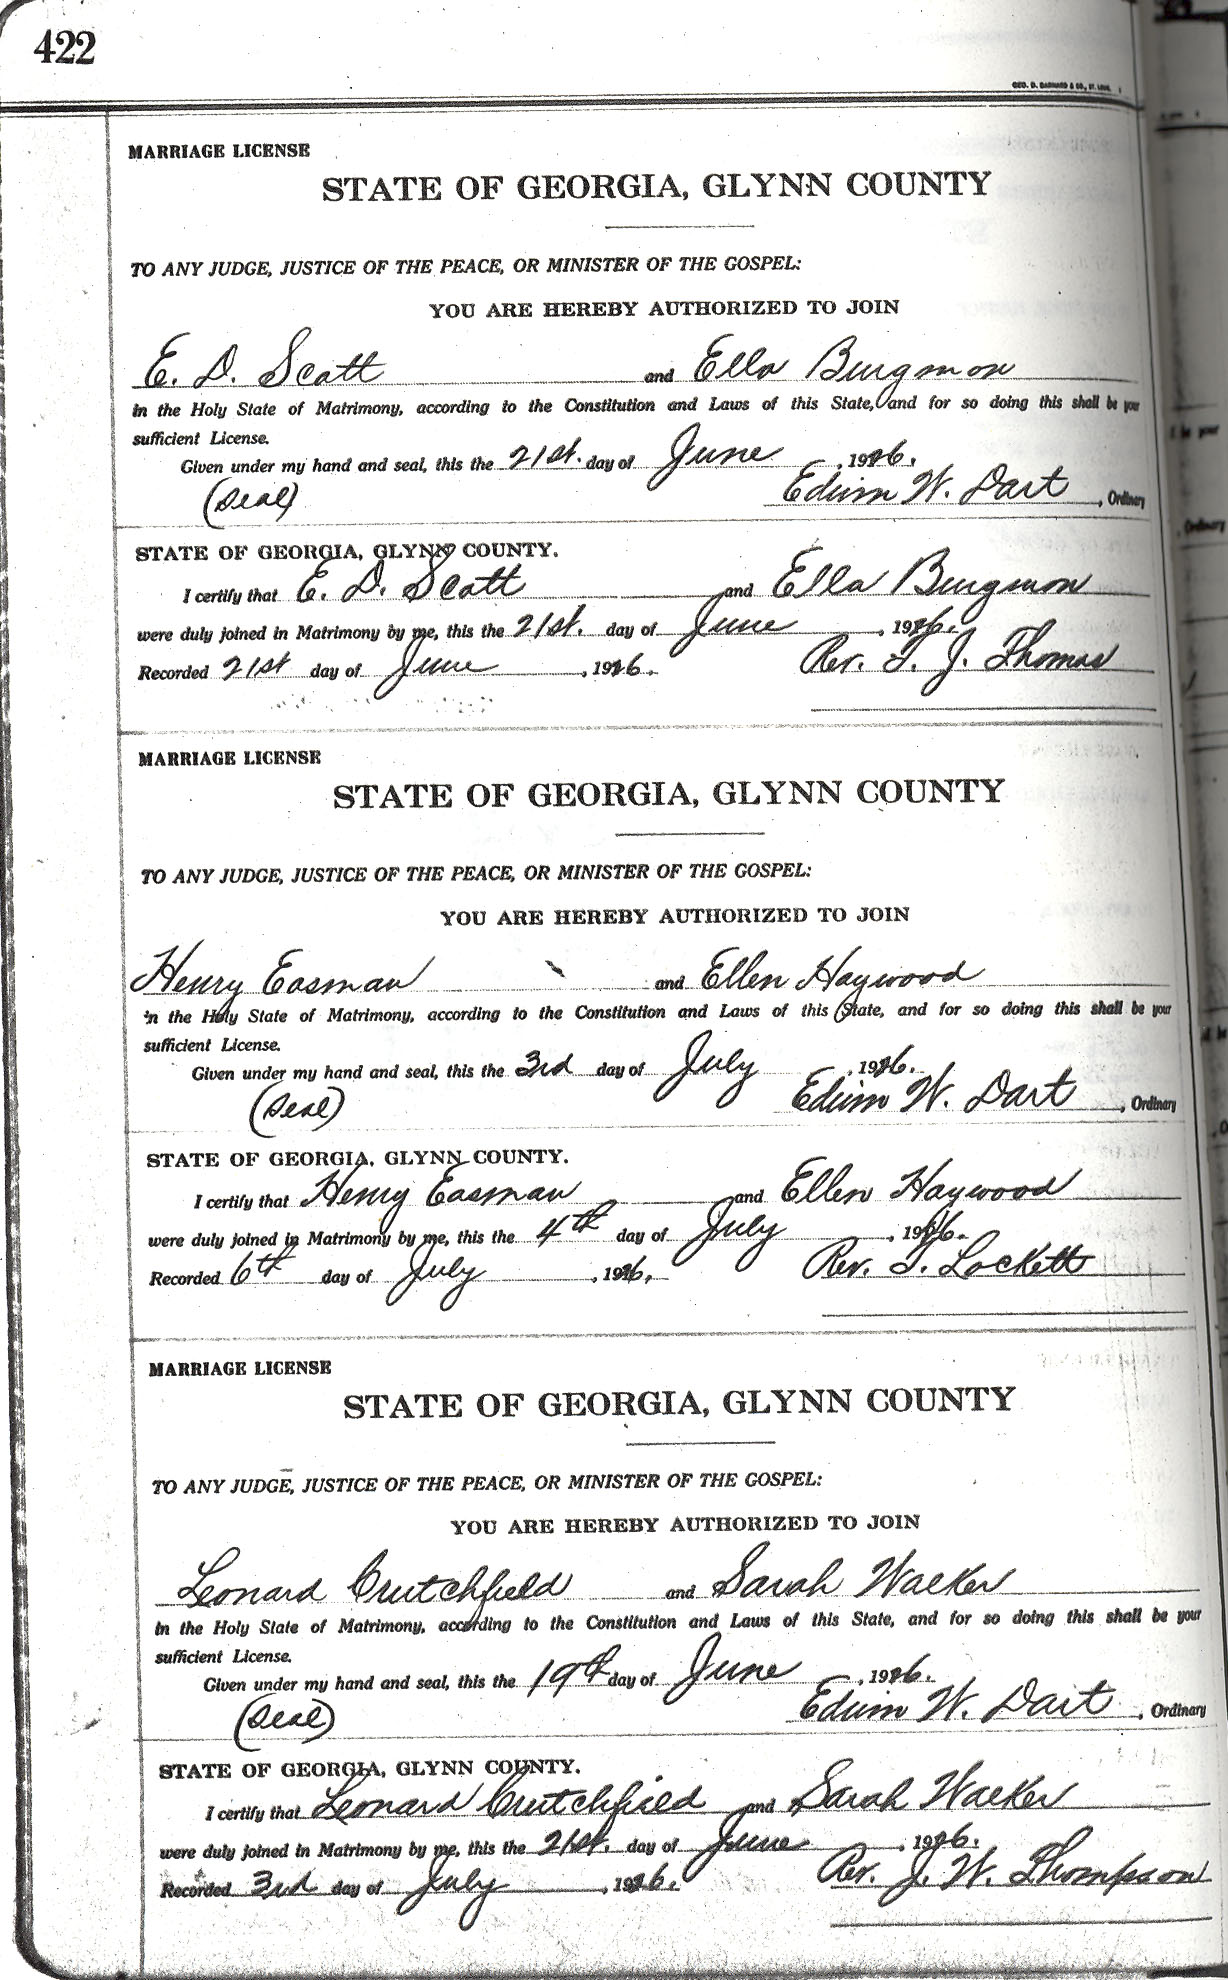 422
GEO. D. BARNARD & CO., ST. LOUIS
MARRIAGE LICENSE
STATE OF GEORGIA, GLYNN COUNTY
TO ANY JUDGE, JUSTICE OF THE PEACE, OR MINISTER OF THE GOSPEL:
YOU ARE HEREBY AUTHORIZED TO JOIN
E. D. Scott and Ella Burgmon
in the Holy State of Matrimony, according to the Constitution and Laws of this State, and for so doing this shall be your
sufficient License.
Given under my hand and seal, this the 21st. day of June, 1926.
(Seal) Edwin W. Dart, Ordinary
STATE OF GEORGIA, GLYNN COUNTY.
I certify that E. D. Scott and Ella Burgmon
were duly joined in Matrimony by me, this the 21st. day of June, 1926.
Recorded 21st day of June, 1926. Rev. T. J. Thomas
MARRIAGE LICENSE
STATE OF GEORGIA, GLYNN COUNTY
TO ANY JUDGE, JUSTICE OF THE PEACE, OR MINISTER OF THE GOSPEL:
YOU ARE HEREBY AUTHORIZED TO JOIN
Henry Easman and Ellen Haywood
in the Holy State of Matrimony, according to the Constitution and Laws of this State, and for so doing this shall be your
sufficient License.
Given under my hand and seal, this the 3rd day of July, 1926.
(Seal) Edwin W. Dart, Ordinary
STATE OF GEORGIA, GLYNN COUNTY.
I certify that Henry Easman and Ellen Haywood
were duly joined in Matrimony by me, this the 4th day of July, 1926.
Recorded 6th day of July, 1926. Rev. T. Lockett
MARRIAGE LICENSE
STATE OF GEORGIA, GLYNN COUNTY
TO ANY JUDGE, JUSTICE OF THE PEACE, OR MINISTER OF THE GOSPEL:
YOU ARE HEREBY AUTHORIZED TO JOIN
Leonard Crutchfield and Sarah Walker
in the Holy State of Matrimony, according to the Constitution and Laws of this State, and for so doing this shall be your
sufficient License.
Given under my hand and seal, this the 19th day of June, 1926.
(Seal) Edwin W. Dart, Ordinary
STATE OF GEORGIA, GLYNN COUNTY.
I certify that Leonard Crutchfield and Sarah Walker
were duly joined in Matrimony by me, this the 21st. day of June, 1926.
Recorded 3rd day of July, 1926. Rev. J. W. Thompson